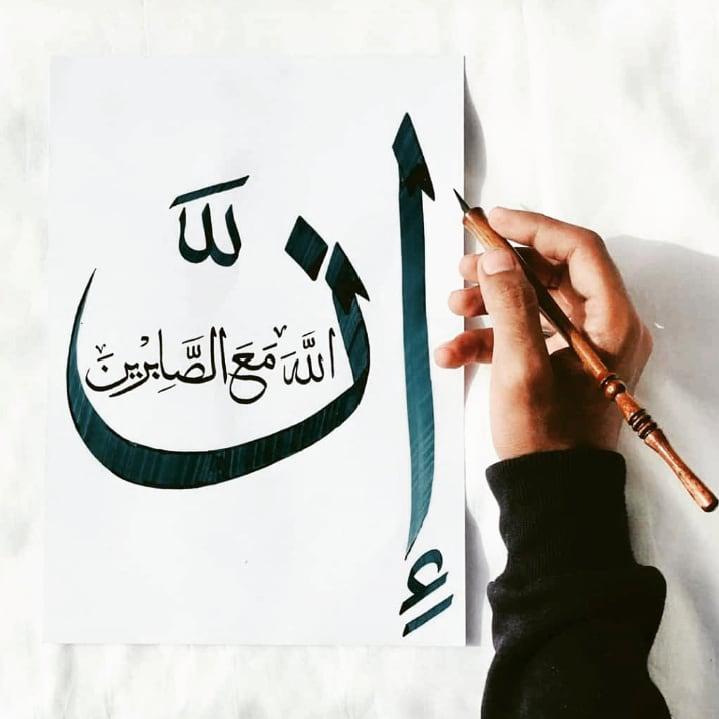 إِنَّ
اللَّهَ مَعَ الصَّابِرْينَ